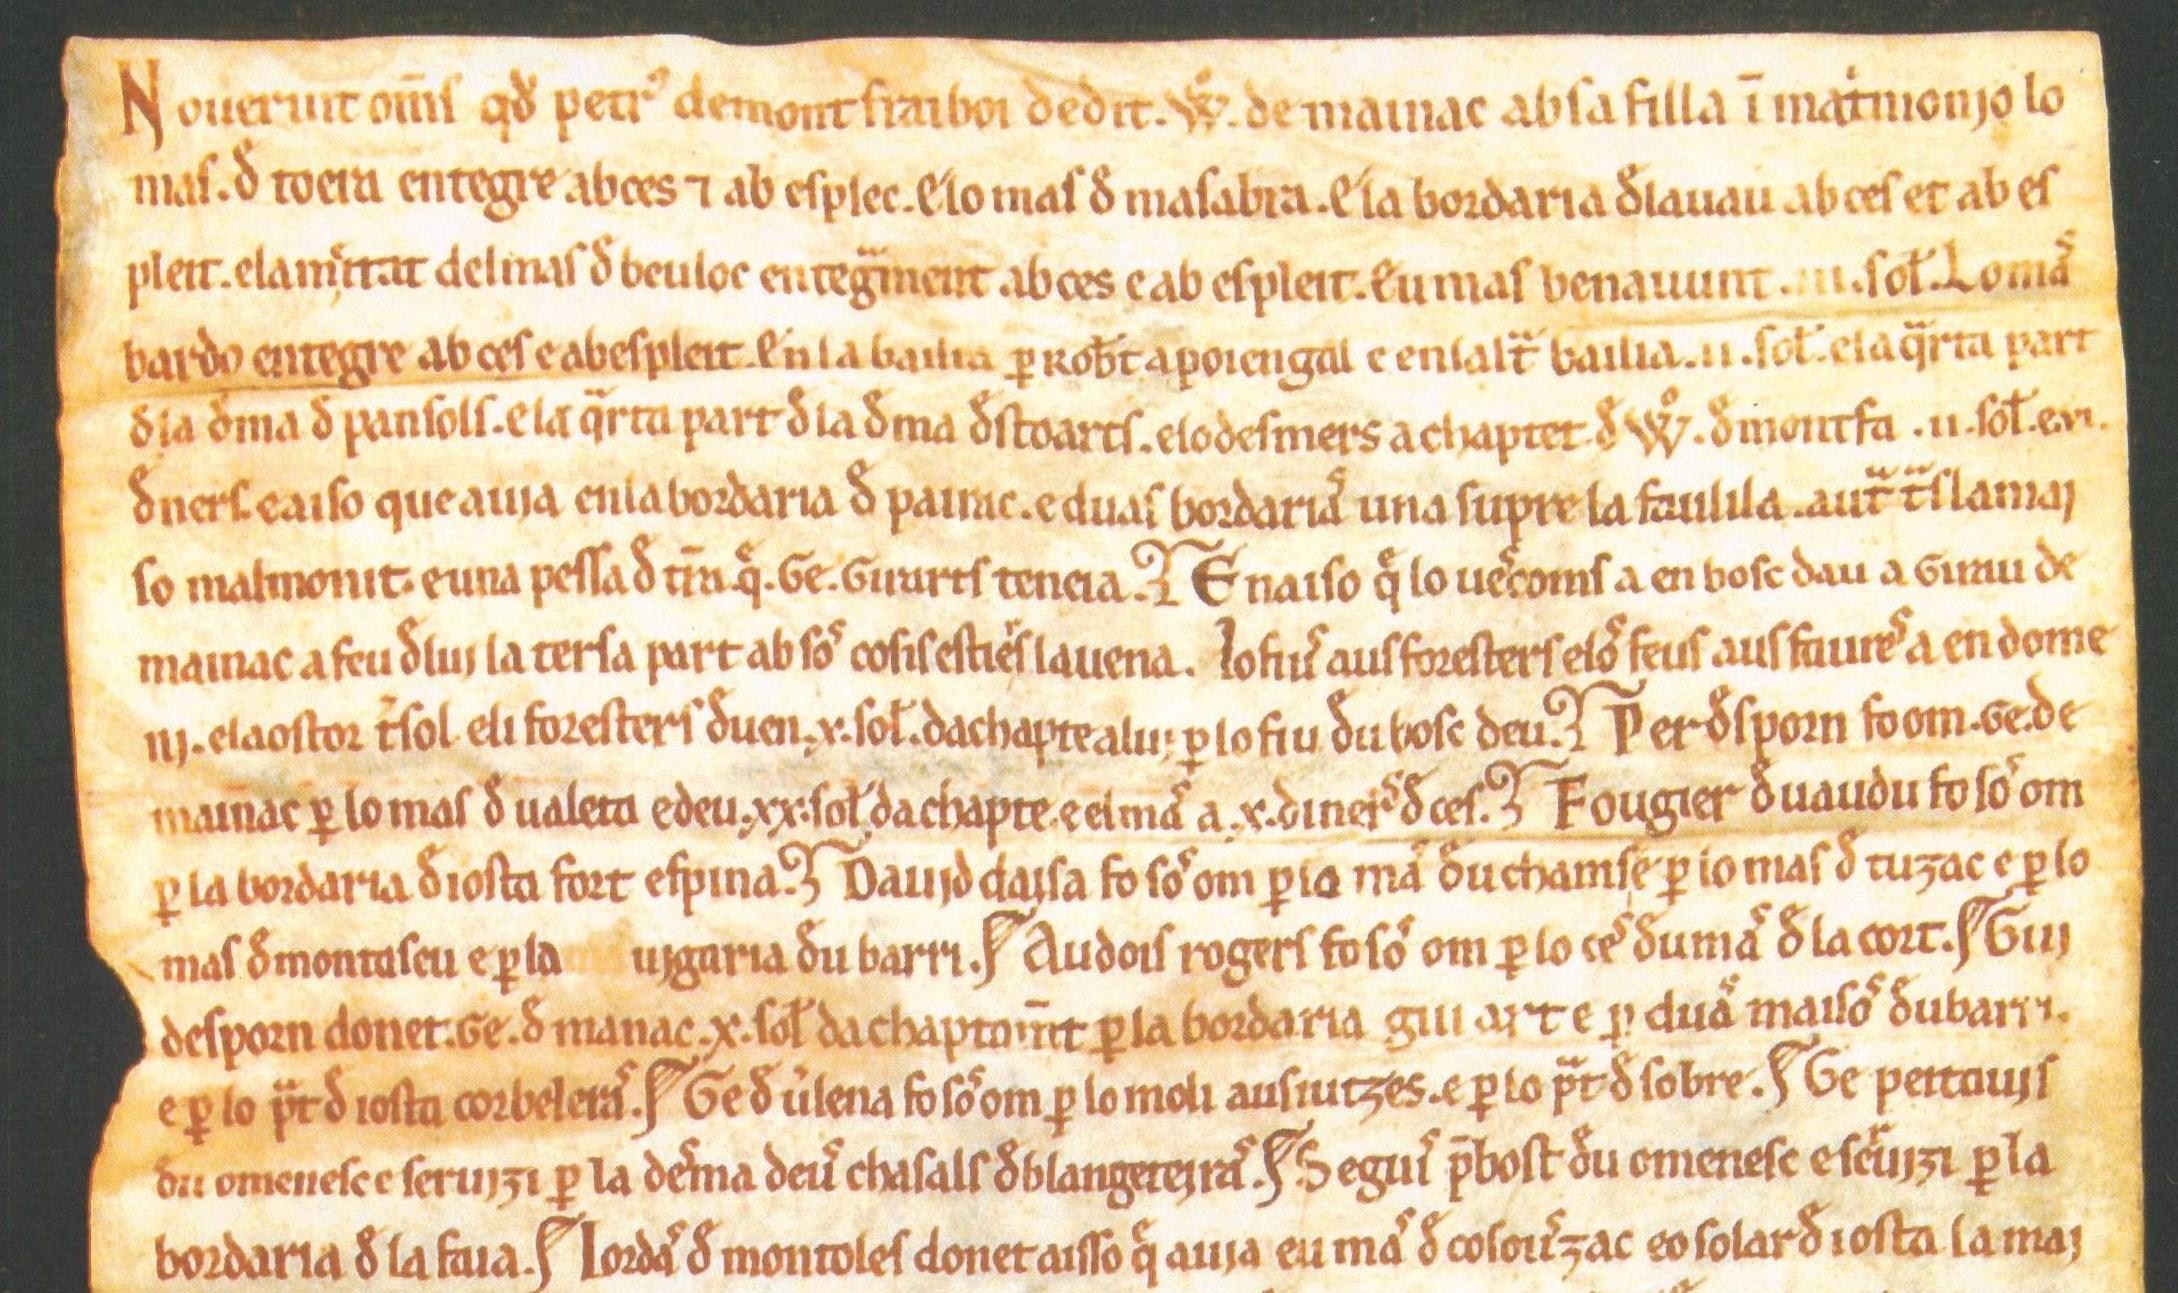 Nouerunt om̅s qđ petrꝰ demont fraiboi dedit. Wͦ. de mainac ab sa filla i̅ mat͛imonjo lo
mas. đ toeıa entegre ab ces ⁊ ab esplec. E lo mas đ masabra. E la bordaria đlauau ab ces et ab es
pleit. e la meitat del mas đ beuloc entegͣment ab ces e ab espleit. Eu mas benauunt sol. Lo mas
bardo entegre ab ces e ab espleit. En la bailia ꝑ Robt a poiengal e en laltͣ bailia. ii. sol. e la qͣrta part
đ la đma đ pansols. e la qͣrta part đ la đma đstoarts. e lo desmers achaptet đ Wͦ. đ montfa. ii. sol. e vi.
đners. e aiso que auia en la bordaria đ painac. e duas bordariaˢ una supre la faulila. autͣ tͣs la mai
so malmonit. e una pessa đ tr̅a q̅. Ge. Guarts teneia. Enaiso q̅ lo uescoms a en bosc dau a Girau de
mainac a feu đ lui la tersa part ab soˢ cosis estiers lauena. lo fiuˢ aus foresters e loˢ feus aus faureˢ a en dome
nj. e la ostor tͤsol e li foresters đuen. x. sol. dachapte a lui ꝑ lo fiu đu bosc deu. Per đsporn fo om. Ge. de
mainac ꝑ lo mas đ ualeta e deu. xx. sol dachapte. e el maˢ a. x. dinerˢ đ ces. Fougier đ uaudu fo soˢ om
ꝑ la bordaria đ iosta fort espina. Dauid daisa fo soˢ om ꝑ lo maˢ đu chamse ꝑ lo mas đ tuzac e ꝑ lo
mas đ montascu e ꝑ la uigaria đu barri. Audois rogers fo soˢ om ꝑ lo ceˢ đu maˢ đ la cort. Gui
desporn donet. Ge. đ manac. x. sol dachaptam̅t ꝑ la bordaria guiart e ꝑ duaˢ maisoˢ đu barri.
e ꝑ lo pͣt đ iosta corbeleiraˢ. Ge đ uilena fo soˢ om ꝑ lo moli ausiutzes. e ꝑ lo pͣt đ sobre. Ge peitauis
đu omenesc e seruizi ꝑ la desma deuˢ chasals đ blangeteiraˢ. Seguiˢ p̅bost đu omenesc e seruizi ꝑ la
bordaria đ la faia. Iordaˢ đ montoles donet aisso q̅ auia eu maˢ đ cosouˢzac eo solar đ iosta la mai